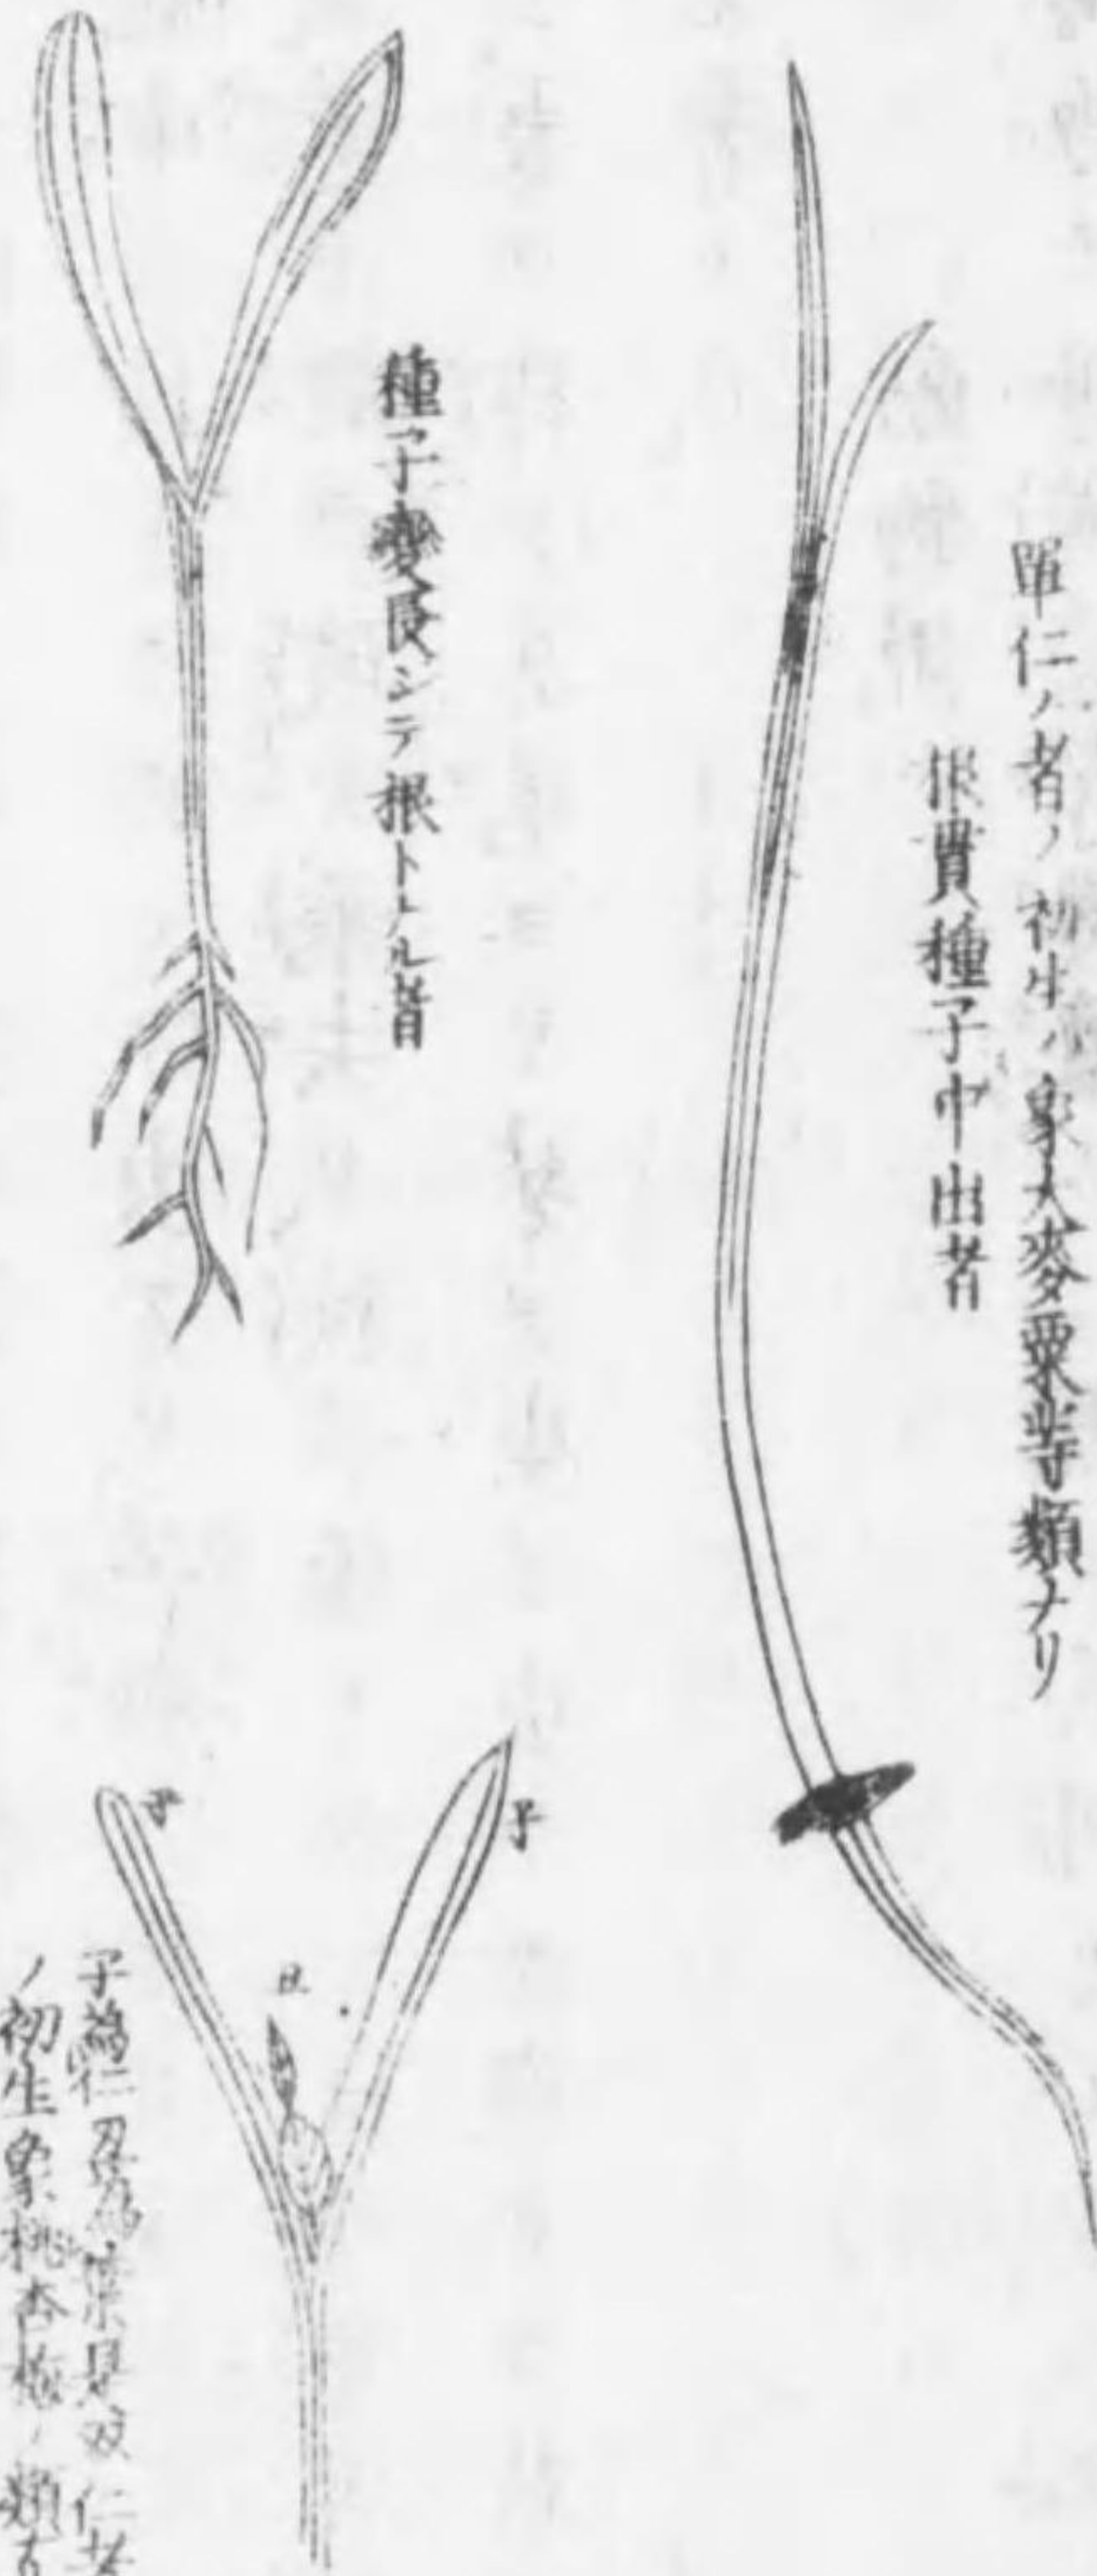 單仁ノ者ノ初生ハ象大麥粟等類ナリ
根貫種子中出者
種子變長シテ根トナル者
子
子
子為仁為葉是双仁者
ノ初生象桃杏梅ノ類